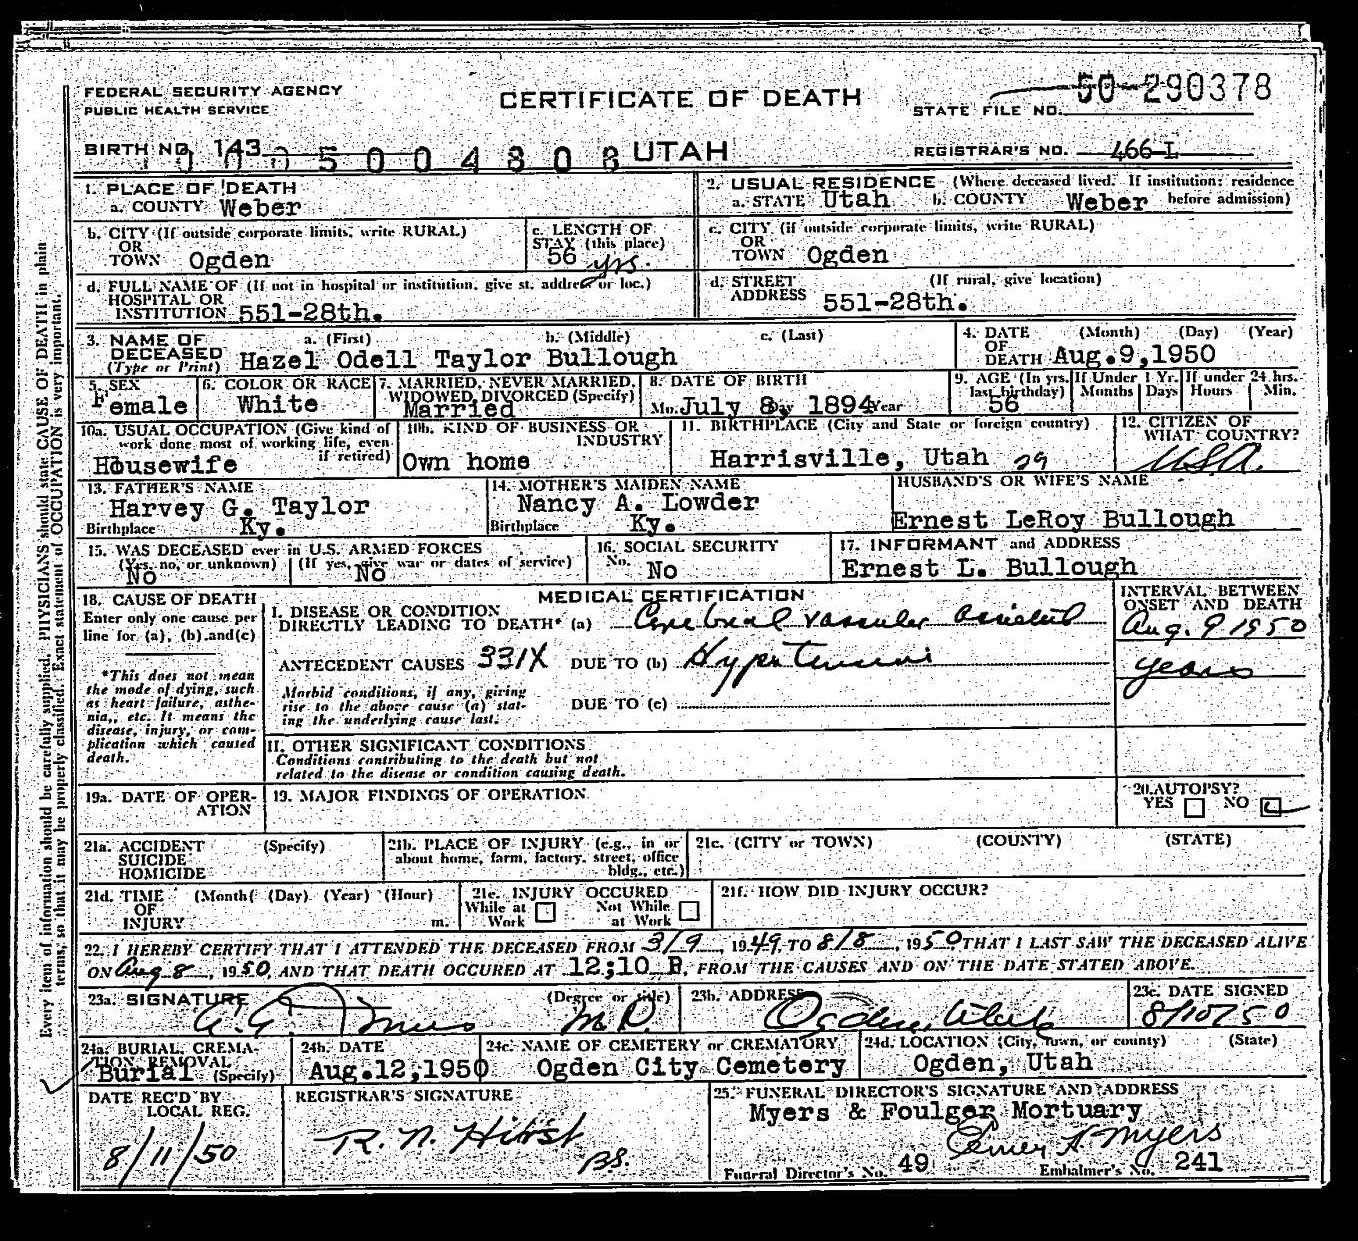 FEDERAL SECURITY AGENCY
PUBLIC HEALTH SERVICE
CERTIFICATE OF DEATH
STATE FILE NO. 50-290378
BIRTH NO. 143
UTAH
REGISTRAR'S NO. 466-L
1. PLACE OF DEATH
a. COUNTY Weber
2. USUAL RESIDENCE (Where deceased lived. If institution: residence before admission)
a. STATE Utah b. COUNTY Weber
b. CITY (If outside corporate limits, write RURAL)
OR
TOWN Ogden
c. LENGTH OF
STAY (this place)
56 yrs.
c. CITY (if outside corporate limits, write RURAL)
OR
TOWN Ogden
d. FULL NAME OF (If not in hospital or institution, give st. address or loc.)
HOSPITAL OR
INSTITUTION 551-28th.
d. STREET (If rural, give location)
ADDRESS 551-28th.
3. NAME OF a. (First) b. (Middle) c. (Last)
DECEASED
(Type or Print) Hazel Odell Taylor Bullough
4. DATE (Month) (Day) (Year)
OF
DEATH Aug.9,1950
5. SEX
Female
6. COLOR OR RACE
White
7. MARRIED, NEVER MARRIED,
WIDOWED, DIVORCED (Specify)
Married
8. DATE OF BIRTH
Mo. July 8, Day 1894 Year
9. AGE (In yrs. last birthday)
56
If Under 1 Yr.
Months Days
If under 24 hrs.
Hours Min.
10a. USUAL OCCUPATION (Give kind of
work done most of working life, even
if retired)
Housewife
10b. KIND OF BUSINESS OR
INDUSTRY
Own home
11. BIRTHPLACE (City and State or foreign country)
Harrisville, Utah 29
12. CITIZEN OF
WHAT COUNTRY?
USA.
13. FATHER'S NAME
Harvey G. Taylor
Birthplace Ky.
14. MOTHER'S MAIDEN NAME
Nancy A. Lowder
Birthplace Ky.
HUSBAND'S OR WIFE'S NAME
Ernest LeRoy Bullough
15. WAS DECEASED ever in U.S. ARMED FORCES
(Yes, no, or unknown) (If yes, give war or dates of service)
No No
16. SOCIAL SECURITY
No. No
17. INFORMANT and ADDRESS
Ernest L. Bullough
18. CAUSE OF DEATH
Enter only one cause per
line for (a), (b) and (c)
*This does not mean
the mode of dying, such
as heart failure, asthe-
nia, etc. It means the
disease, injury, or com-
plication which caused
death.
MEDICAL CERTIFICATION
I. DISEASE OR CONDITION
DIRECTLY LEADING TO DEATH* (a) Cerebral vascular accident
ANTECEDENT CAUSES 331X DUE TO (b) Hypertension
Morbid conditions, if any, giving
rise to the above cause (a) stat-
ing the underlying cause last.
DUE TO (c)
INTERVAL BETWEEN
ONSET AND DEATH
Aug. 9 1950
years
II. OTHER SIGNIFICANT CONDITIONS
Conditions contributing to the death but not
related to the disease or condition causing death.
19a. DATE OF OPER-
ATION
19. MAJOR FINDINGS OF OPERATION
20. AUTOPSY?
YES NO
21a. ACCIDENT (Specify)
SUICIDE
HOMICIDE
21b. PLACE OF INJURY (e.g., in or
about home, farm, factory, street, office
bldg., etc.)
21c. (CITY or TOWN) (COUNTY) (STATE)
21d. TIME (Month) (Day) (Year) (Hour)
OF
INJURY m.
21e. INJURY OCCURED
While at Work Not While at Work
21f. HOW DID INJURY OCCUR?
22. I HEREBY CERTIFY THAT I ATTENDED THE DECEASED FROM 3/9, 1949 TO 8/8, 1950 THAT I LAST SAW THE DECEASED ALIVE
ON Aug 8, 1950, AND THAT DEATH OCCURED AT 12;10 P. FROM THE CAUSES AND ON THE DATE STATED ABOVE.
23a. SIGNATURE (Degree or title)
M.D.
23b. ADDRESS
Ogden, Utah
23c. DATE SIGNED
8/10/50
24a. BURIAL, CREMA-
TION REMOVAL
Burial (Specify)
24b. DATE
Aug.12,1950
24c. NAME OF CEMETERY or CREMATORY
Ogden City Cemetery
24d. LOCATION (City, town, or county) (State)
Ogden, Utah
DATE REC'D BY
LOCAL REG.
8/11/50
REGISTRAR'S SIGNATURE
R. N. Hirst
BS.
25. FUNERAL DIRECTOR'S SIGNATURE AND ADDRESS
Myers & Foulger Mortuary
Elmer A Myers
Funeral Director's No. 49 Embalmer's No. 241
Every item of information should be carefully supplied. PHYSICIANS should state CAUSE OF DEATH in plain
terms, so that it may be properly classified. Exact statement of OCCUPATION is very important.